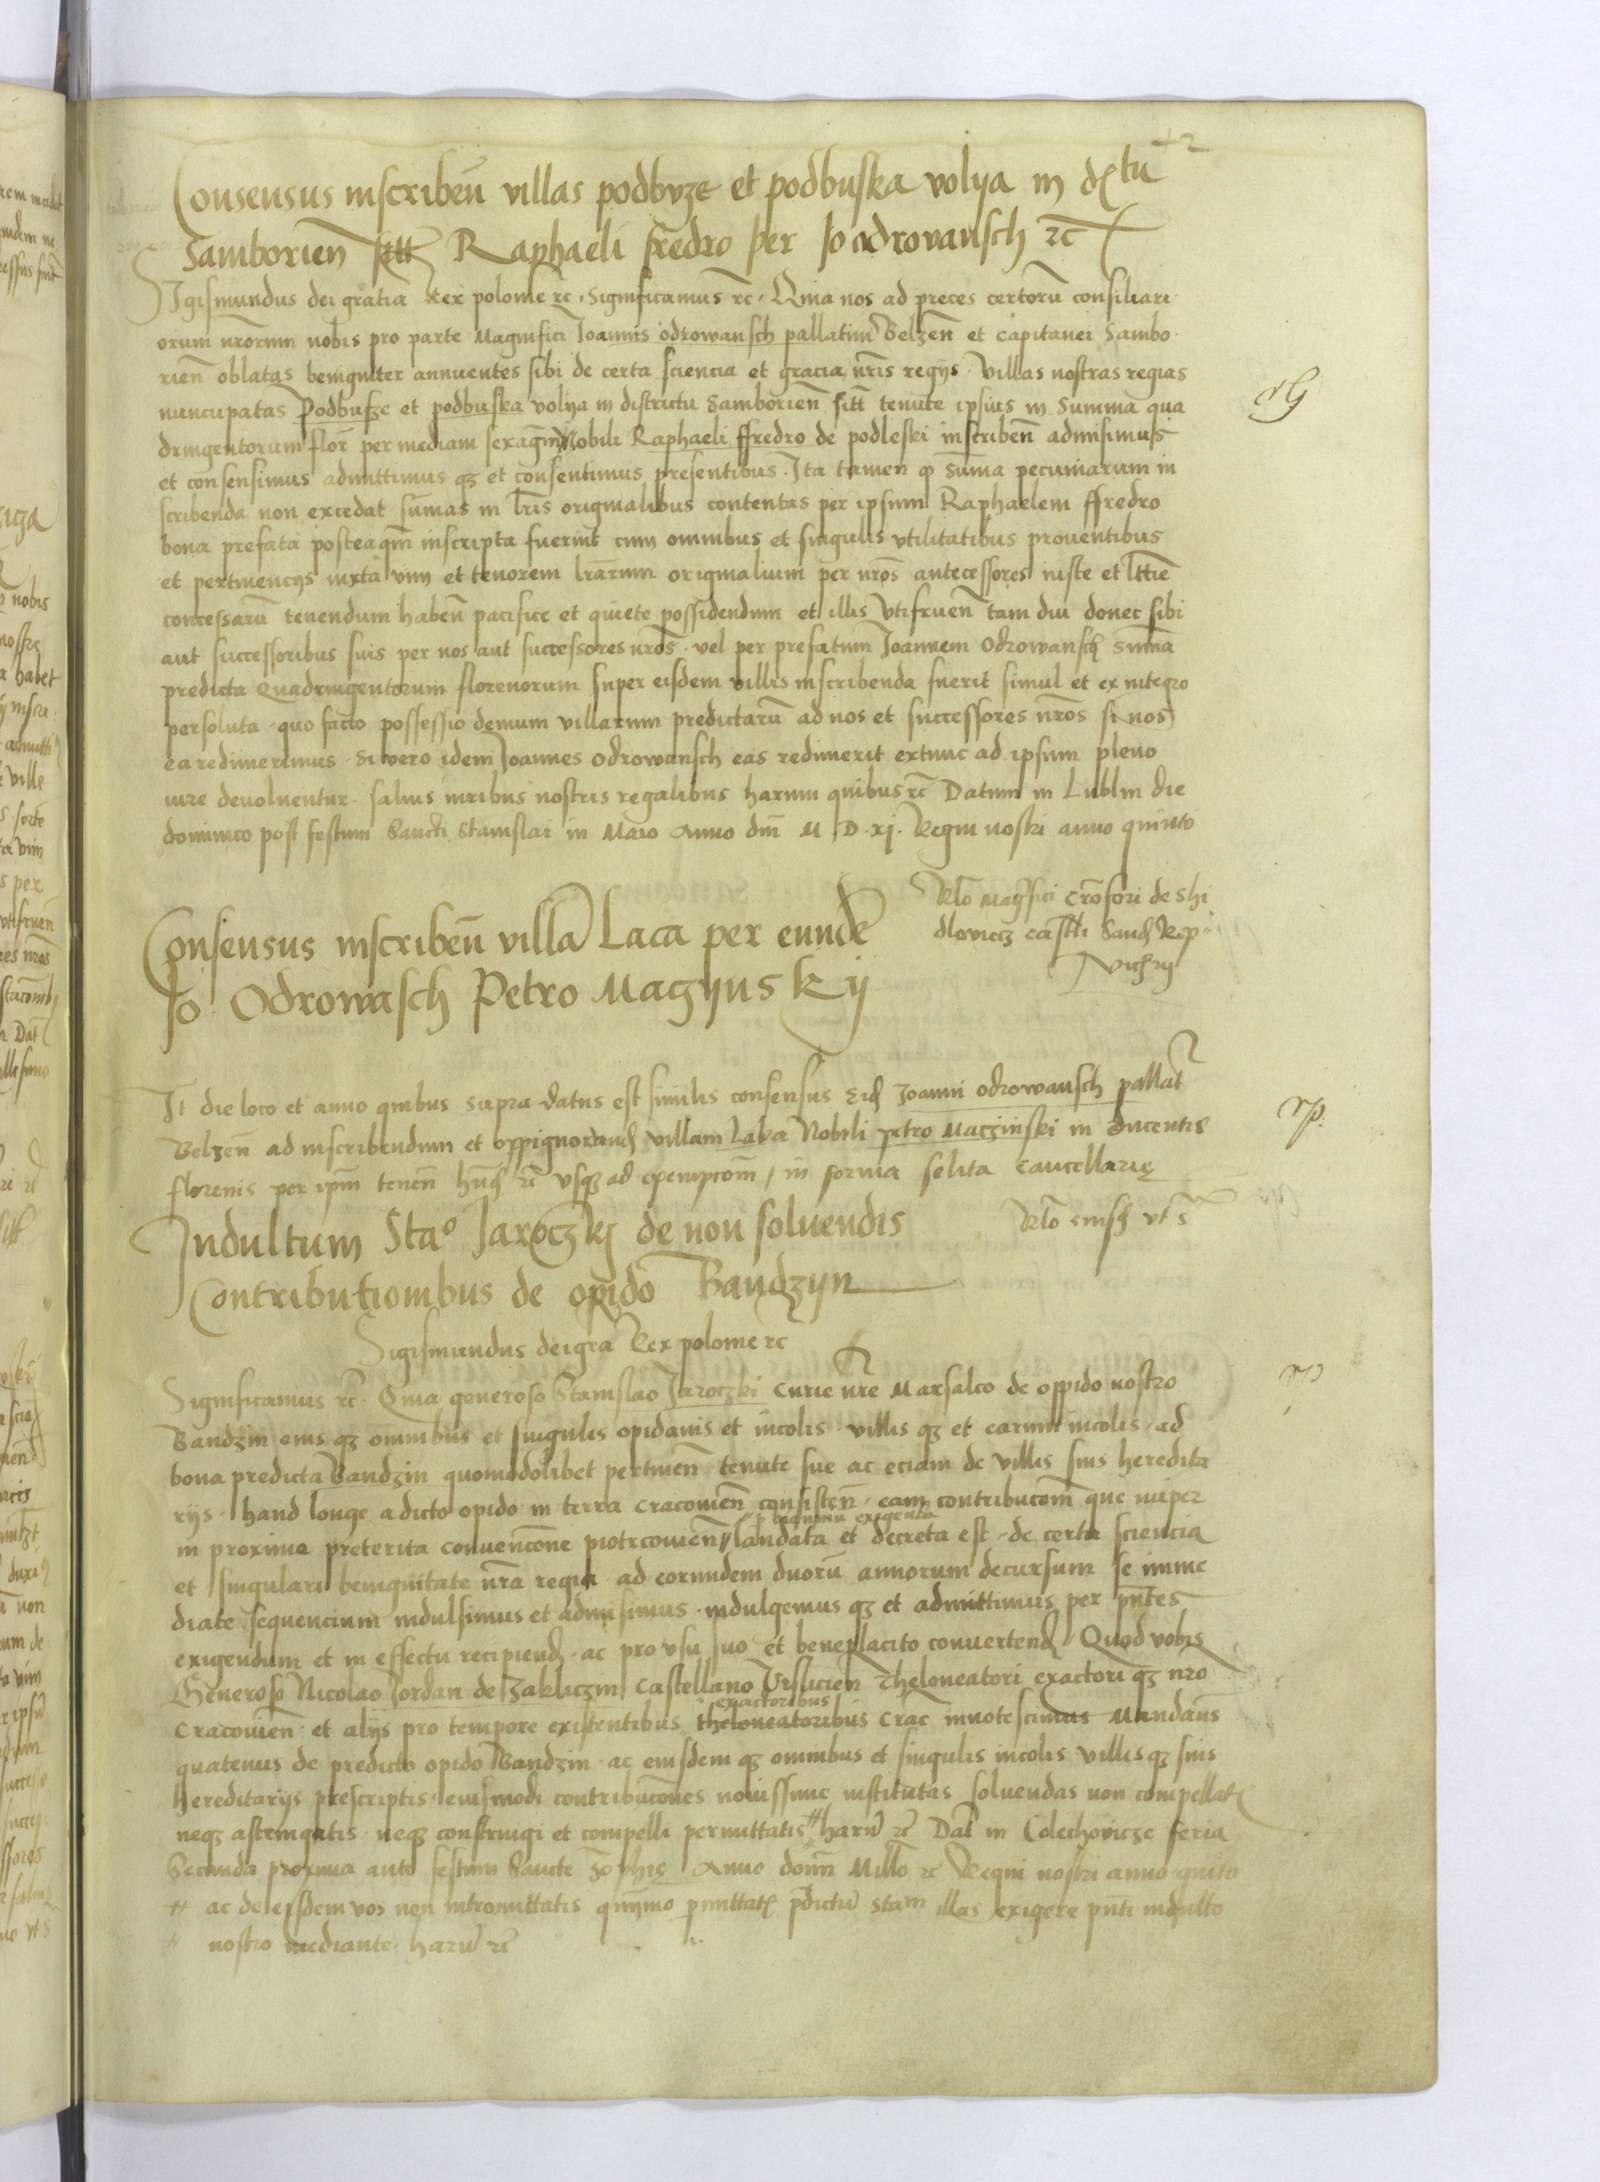 Consensus inscriben̄ villas podbvze et podbuska volya in dₓtu
Samborien̄ sitt Raphaeli fredro per Jo odrovansch ꝛc̄
Sigismundus dei gratia Rex polonie ꝛc. Significamus ꝛc. Quia nos ad preces certorū consiliari
orum nr̄orum nobis pro parte Magnifici Joannis odrowansch pallatini Belzen̄ et Capitanei Sambo
rien̄ oblatas benigniter annuentes sibi de certa sciencia et gracia nr̄is regijs. Villas nostras regias
nuncupatas Podbusze et podbuska volya in districtu Samborien̄ sitt̄ tenute ipsius in Summa qua
dringentorum flor̄ per mediam sexagen̄ Nobili Raphaeli ffredro de podleski inscriben̄ admisimus
et consensimus admittimus qʒ et consentimus presentibus. Ita tamen ꝙ Sum̄a pecuniarum in
scribenda non excedat sum̄as in lr̄is originalibus contentas per ipsum Raphaelem ffredro
bona prefata posteaqm̄ inscripta fuerint cum omnibus et singulis vtilitatibus prouentibus
et pertinencijs iuxta vim et tenorem lr̄arum originalium per nr̄os antecessores iuste et lttīe
concessarū tenendum haben̄ pacifice et quiete possidendum et illis vtifruen̄ tam diu donec sibi
aut successoribus suis per nos aut successores nr̄os. vel per prefatum Joannem Odrowansch Sum̄a
predicta Quadringentorum florenorum super eisdem villis inscribenda fuerit simul et ex integro
persoluta. quo facto possessio demum villarum predictarū ad nos et successores nr̄os si nos
ea redimerimus. Si vero idem Joannes Odrowansch eas redimerit extunc ad ipsum pleno
iure deuoluentur. saluis iuribus nostris regalibus harum quibus ꝛc̄ Datum in Lublin die
dominico post festum Sancti Stanislai in Maio Anno dni̅ M D xj. Regni nostri anno quinto
Rl̄o Mag͞fici Cr̄ofori de Shi
dloviecz castlī Sand Rep
Vich͞ij
Consensus inscriben̄ villā Laca per eundē
Jo. Odrowasch Petro Maczynskij
It die loco et anno quibus supra datus est similis consensus Eid Joanni odrowansch pallat̄
Belzen̄ ad inscribendum et oppignorand villam Laka Nobili Petro Maczinski in ducentis
florenis per ipm̄ tenen̄ hn̄d ꝛc̄ vsqʒ ad exempcōm / in forma solita cancellarię
Rl̄o eiusd vt s̄
Indultum Sta° Jaroczkj de non soluendis
Contributionibus de opido Bandzyn
Sigismundus dei gr̄a Rex polonie ꝛc
Significamus ꝛc̄. Quia generoso Stanislao Jaroczki Curie nr̄e Marsalco de oppido nostro
Bandzin eius qʒ omnibus et singulis opidanis et incolis villis qʒ et earum incolis. ad
bona predicta Bandzin quomodolibet pertinen̄ tenute sue ac eciam de villis suis heredita
rijs. haud longe a dicto opido in terra Cracouien̄ consisten̄. eam contribucōm que nuper
in proxime preterita conuencōne piotrcouien̄ laudata et decreta est. de certa sciencia
et singulari benignitate nr̄a regia ad eorundem duorū annorum decursum se imme
diate sequencium indulsimus et admisimus. indulgemus qʒ et admittimus per pn̄tes
exigendum et in effectu recipiend. ac pro vsu suo et beneplacito conuertend. Quod vobis
Generoso Nicolao Jordan de Zakliczin Castellano Voynicien̄ Theloneatori exactori qʒ nr̄o
exactoribus
Cracouien̄ et alijs pro tempore existentibus theloneatoribus Crac̄ innotescimus Mandan̄s
quatenus de predicto opido Bandzin. ac eiusdem qʒ omnibus et singulis incolis villis qʒ suis
hereditarijs prescriptis. eiusmodi contribucōnes nouissime institutas soluendas non compellat̄
neqʒ astringatis. neqʒ constringi et compelli permittatis # harū ꝛc̄ Dat̄ in Colechovicze feria
Secunda proxima ante festum Sancte Zophię Anno domī Mill̄o ꝛc̄ Regni nostri anno quinto
# ac de eisdem vos non intromittatis quīymo p̄mittat̄ p̄dictū Stam illas exigere pn̄ti indulto
nostro mediante. harū ꝛc̄